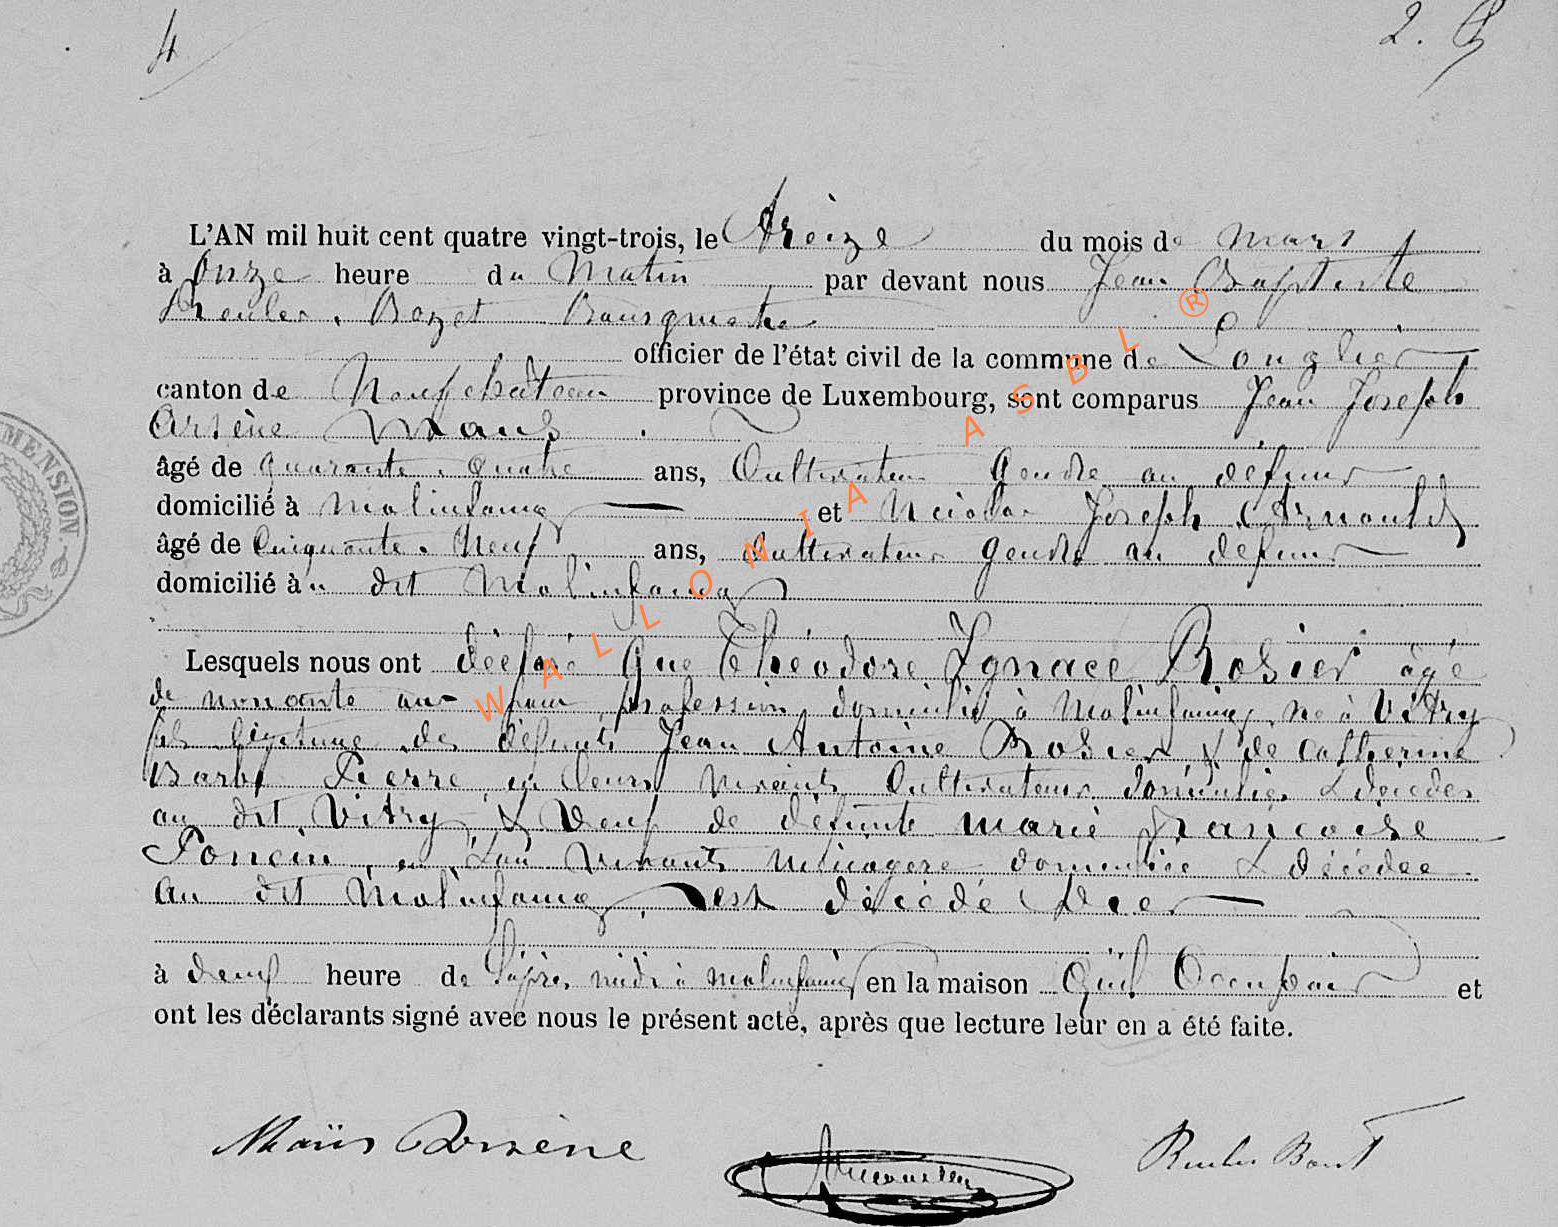 4
2.
L'AN mil huit cent quatre vingt-trois, le treize du mois de mars
à onze heure du Matin par devant nous Jean Baptiste
officier de l'état civil de la commune de Longlier
canton de Neufchâteau province de Luxembourg, sont comparus Jean Joseph
Arsène Maus
âgé de quarante quatre ans, Cultivateur Gendre au défunt
domicilié à Molinfaing et Nicolas Joseph Arnould
âgé de Cinquante Neuf ans, Cultivateur Gendre au défunt
domicilié à u dit Molinfaing
Lesquels nous ont déclaré Que Théodore Ignace Rosier âgé
de nonante ans sans profession domicilié à Molinfaing, né à Vitry
fils légitime des défunts Jean Antoine Rosier & de Catherine
Barbe Pierre en leurs vivants Cultivateurs domiciliés & décédés
au dit Vitry & Veuf de défunte marie françoise
Poncin, en vivant ménagère domiciliée & décédée
au dit Molinfaing, est décédé hier
à deux heure de l'après midi à Molinfaing en la maison Qu'il Occupait et
ont les déclarants signé avec nous le présent acte, après que lecture leur en a été faite.
Maüs Arsène
MENSION
WALLONIA ASBL ®